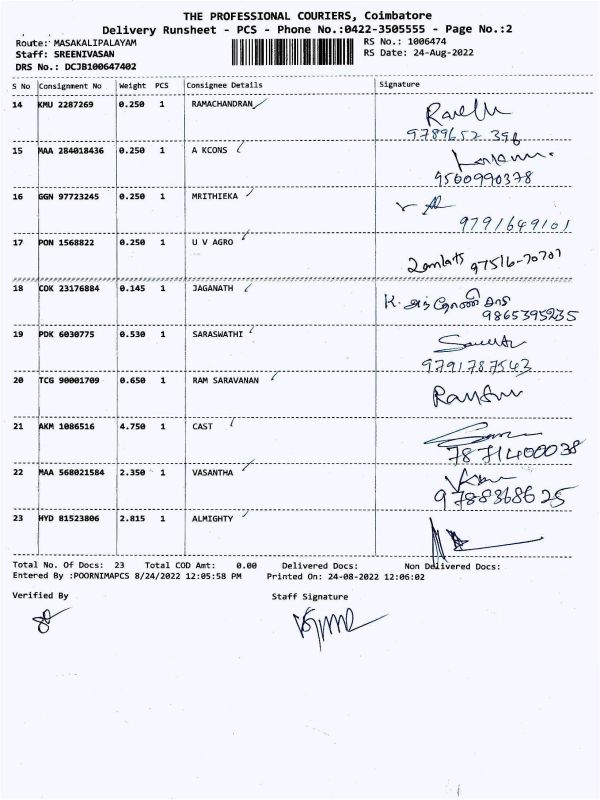 THE PROFESSIONAL COURIERS, Coimbatore
Delivery Runsheet - PCS - Phone No.:0422-3505555 - Page No.:2
Route: MASAKALIPALAYAM
RS No.: 1006474
Staff: SREENIVASAN
RS Date: 24-Aug-2022
DRS No.: DCJB100647402
S No Consignment No Weight PCS Consignee Details Signature
14 KMU 2287269 0.250 1 RAMACHANDRAN
9789652 396
15 MAA 284018436 0.250 1 A KCONS
9500990378
16 GGN 97723245 0.250 1 MRITHIEKA
9791649101
17 PON 1568822 0.250 1 U V AGRO
97516-70707
18 COK 23176884 0.145 1 JAGANATH
K.
9865395235
19 PDK 6030775 0.530 1 SARASWATHI
9791787543
20 TCG 90001709 0.650 1 RAM SARAVANAN
21 AKM 1086516 4.750 1 CAST
7871400038
22 MAA 568021584 2.350 1 VASANTHA
9788368625
23 HYD 81523806 2.815 1 ALMIGHTY
Total No. Of Docs: 23 Total COD Amt: 0.00 Delivered Docs: Non Delivered Docs:
Entered By :POORNIMAPCS 8/24/2022 12:05:58 PM Printed On: 24-08-2022 12:06:02
Verified By Staff Signature